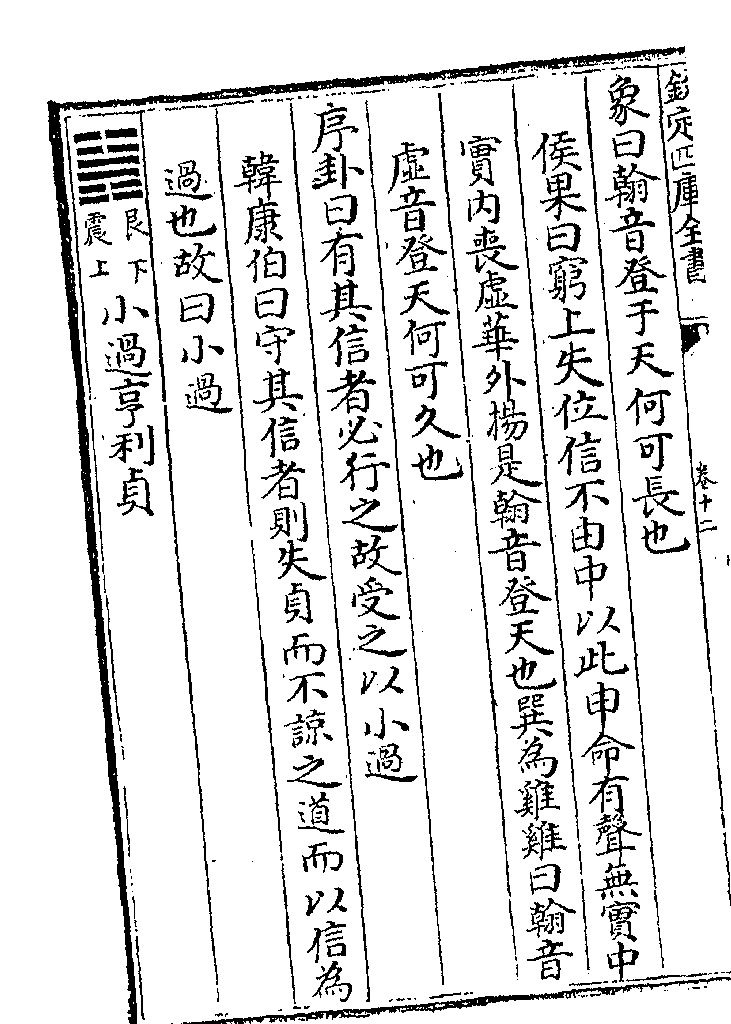 欽定四庫全書
卷十二
象曰翰音登于天何可長也
侯果曰窮上失位信不由中以此申命有聲無實中
實內喪虛華外揚是翰音登天也巽為雞雞曰翰音
虛音登天何可久也
序卦曰有其信者必行之故受之以小過
韓康伯曰守其信者則失貞而不諒之道而以信為
過也故曰小過
艮下
震上
小過亨利貞